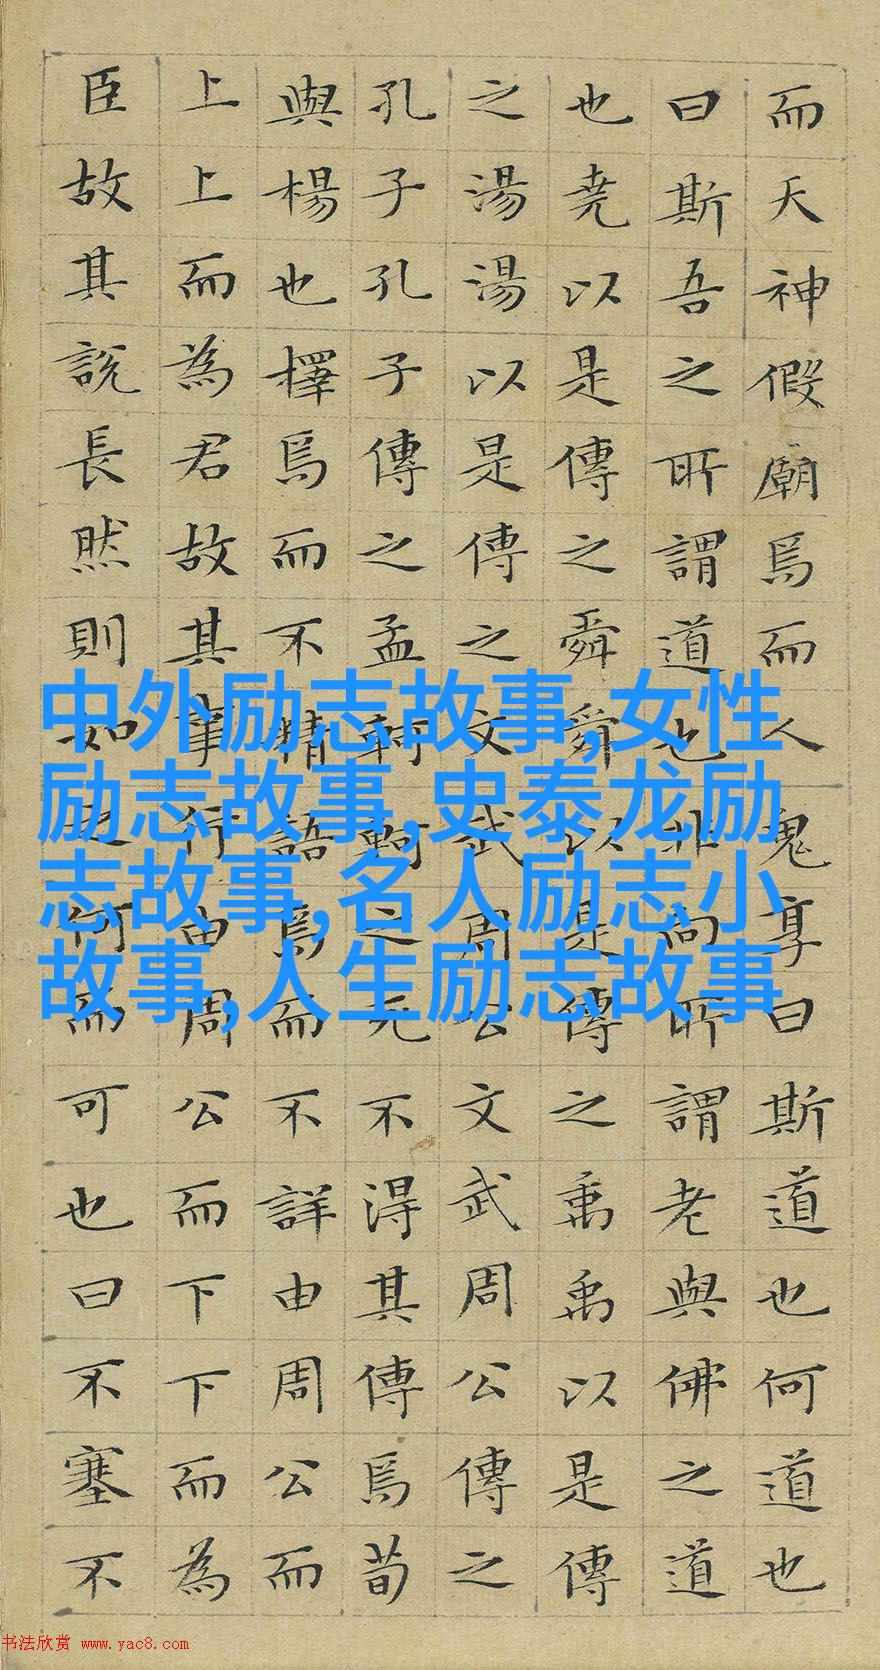 而天神假廟焉而人鬼享曰斯道也何道也
曰斯吾之所謂道也非向所謂老與佛之道
也堯以是傳之舜舜以是傳之禹禹以是傳
之湯湯以是傳之文武周公文武周公傳之
孔子孔子傳之孟軻軻之死不得其傳焉荀
與楊也擇焉而不精語焉而不詳由周公而
上上而為君故其事行由周公而下下而為
臣故其說長然則如之何而可也曰不塞不
中外励志故事,女性
励志故事,史泰龙励
志故事,名人励志小
故事,人生励志故事
书法欣赏 www.yac8.com